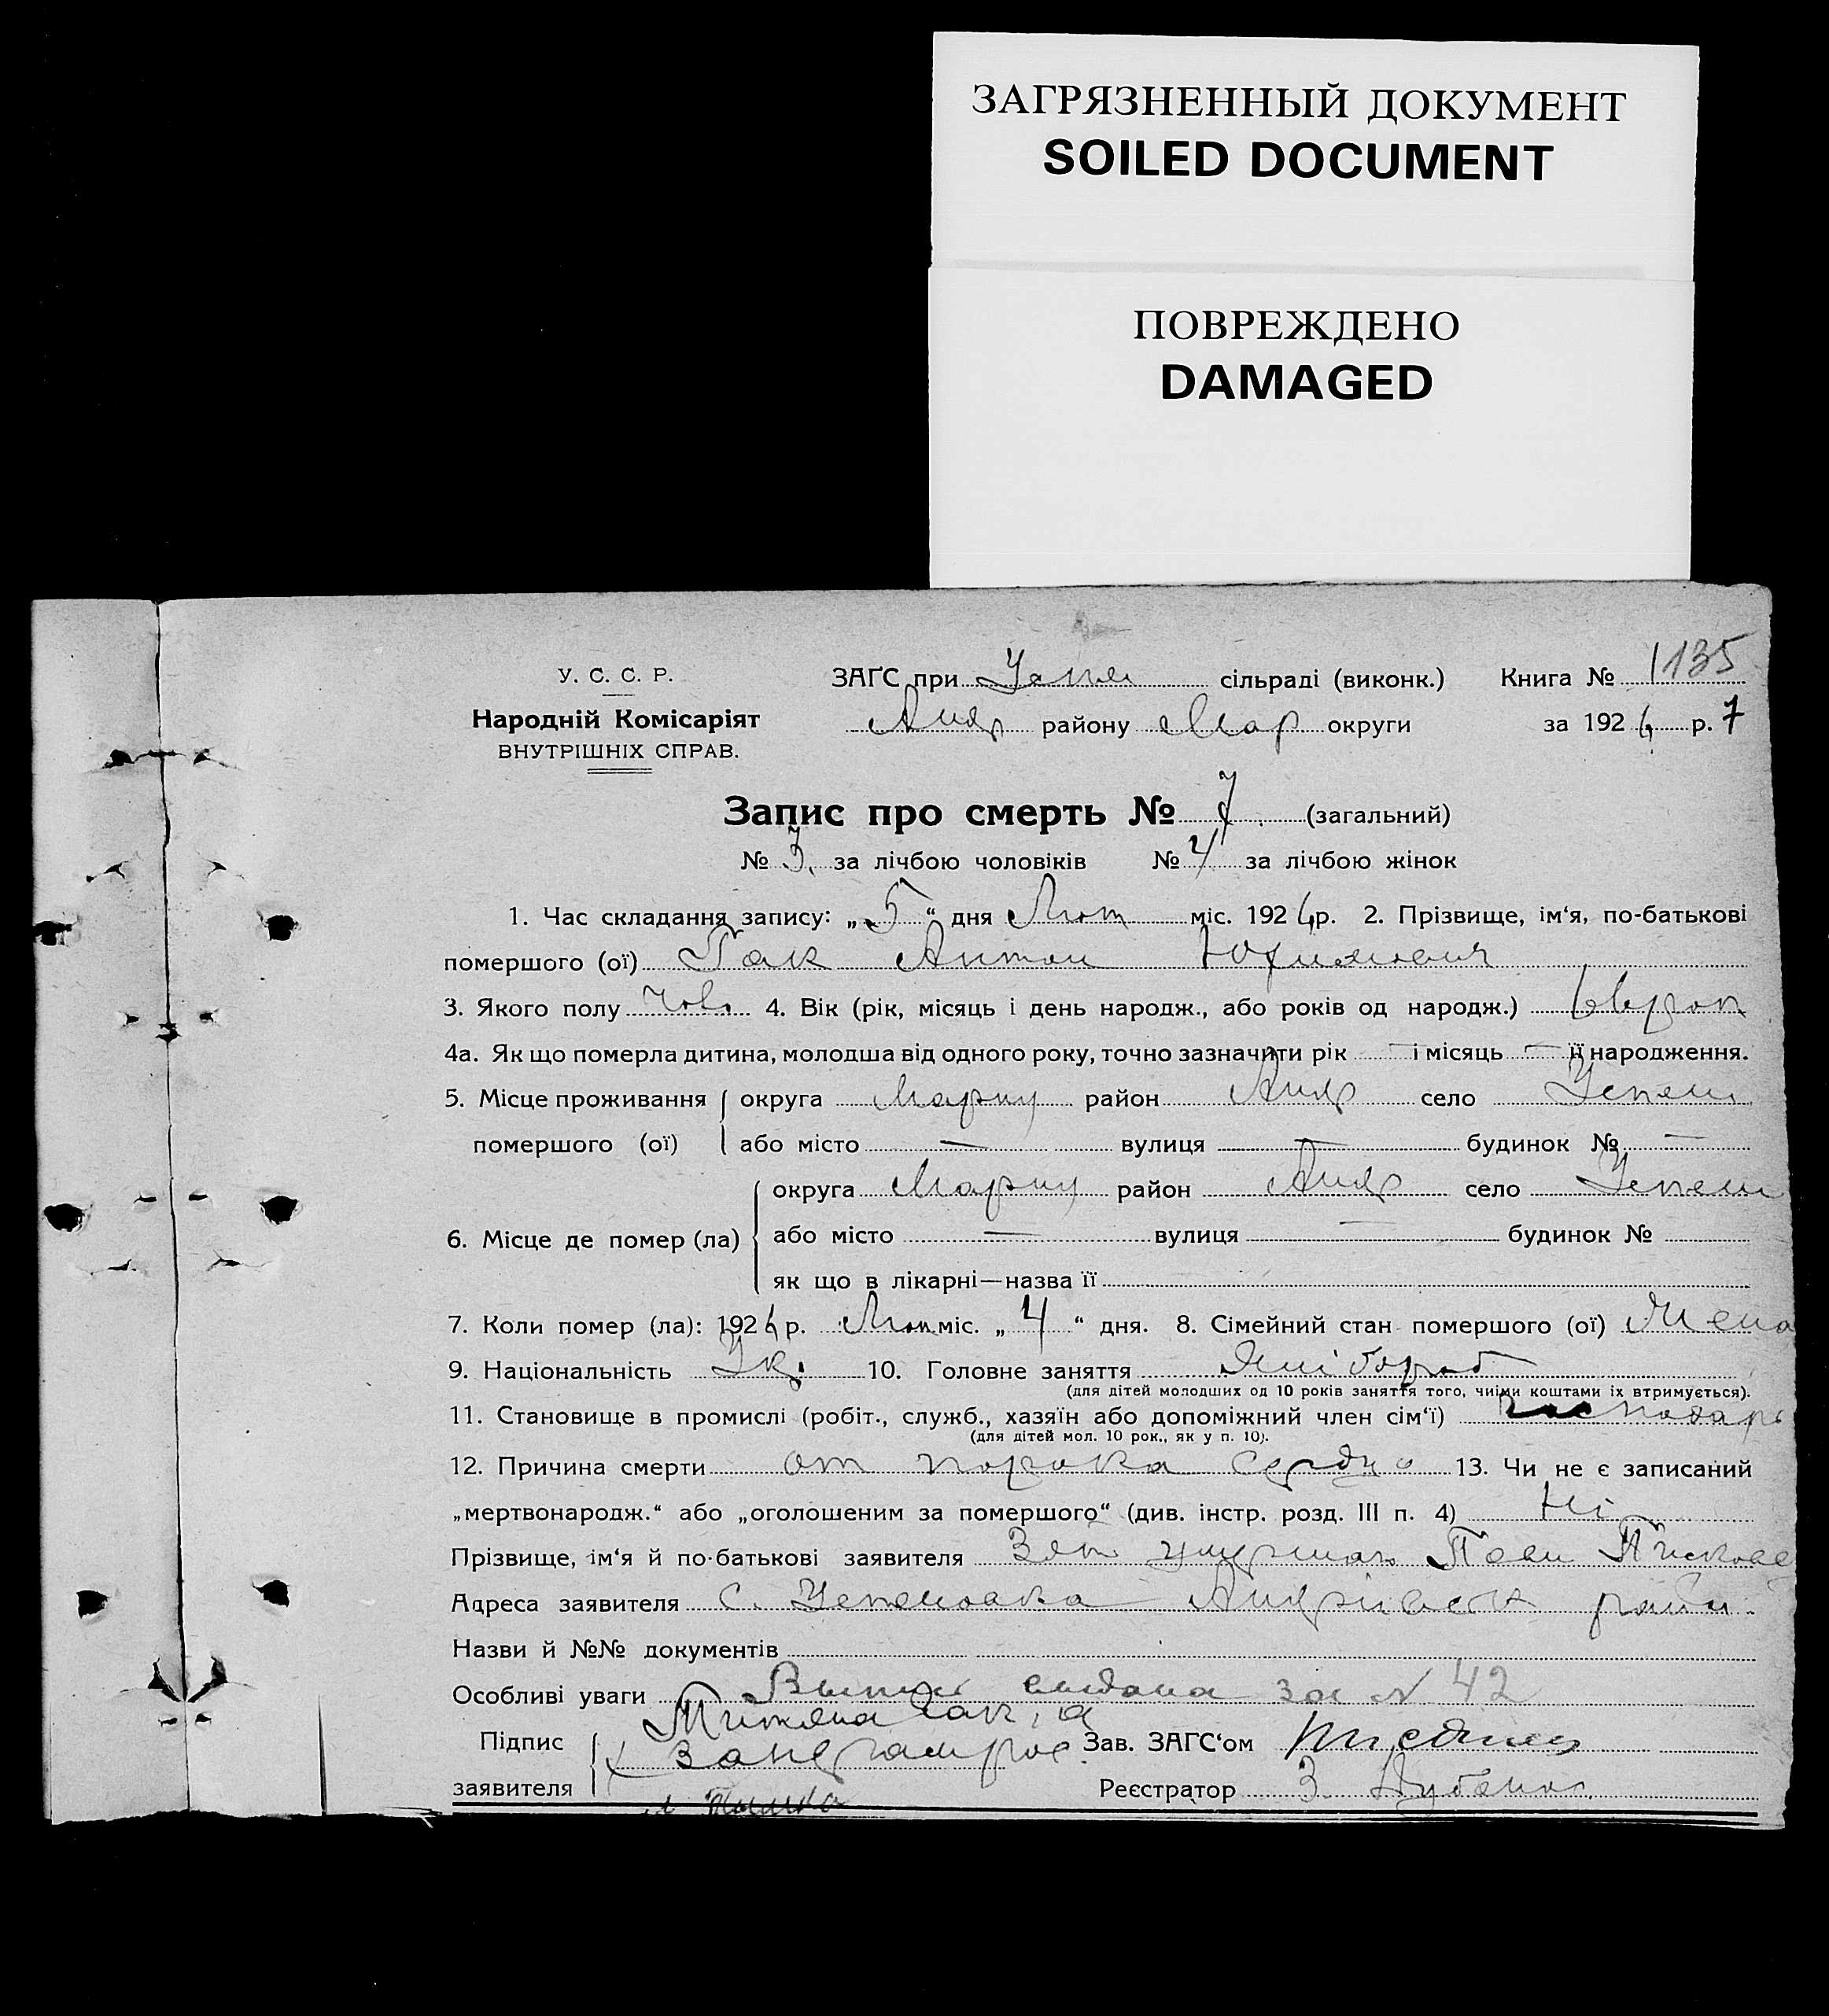 ЗАГРЯЗНЕННЫЙ ДОКУМЕНТ
SOILED DOCUMENT
ПОВРЕЖДЕНО
DAMAGED
У. С. С. Р.
Народній Комісаріят
ВНУТРІШНІХ СПРАВ.
ЗАҐС при сільраді (виконк.) Книга № 135
Андр району Мар округи за 1926 р. 7
Запис про смерть № 7 (загальний)
№ 3 за лічбою чоловіків № 4 за лічбою жінок
1. Час складання запису: „5“ дня Лют міс. 1926 р. 2. Прізвище, ім‘я, по-батькові
помершого (ої) Гак Антон
3. Якого полу Чов. 4. Вік (рік, місяць і день народж., або років од народж.)
4а. Як що померла дитина, молодша від одного року, точно зазначити рік — і місяць — її народження.
5. Місце проживання округа Мариу район Андр село Успен
помершого (ої) або місто — вулиця — будинок № —
6. Місце де помер (ла) округа Мариу район Андр село Успен
або місто — вулиця — будинок №
як що в лікарні—назва її
7. Коли помер (ла): 1926 р. Лют міс. „4“ дня. 8. Сімейний стан помершого (ої)
9. Національність Ук. 10. Головне заняття
(для дітей молодших од 10 років заняття того, чиїми коштами іх втримується).
11. Становище в промислі (робіт., служб., хазяїн або допоміжний член сім‘ї) господарь
(для дітей мол. 10 рок., як у п. 10).
12. Причина смерти от порока сердца 13. Чи не є записаний
„мертвонародж.“ або „оголошеним за помершого“ (див. інстр. розд. III п. 4) Ні
Прізвище, ім‘я й по-батькові заявителя Зят
Адреса заявителя с. Успеновка Андріівськ район
Назви й №№ документів
Особливі уваги Выпис выдана за № 42
Підпис
заявителя
Зав. ЗАГС‘ом
Реєстратор